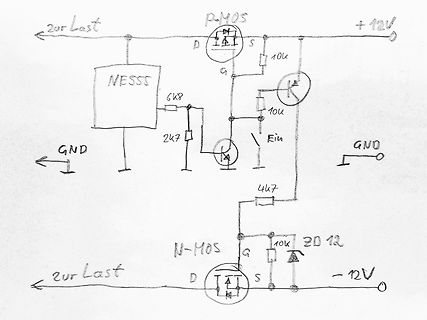 P-MOS
zur Last
D
S
+12V
G
10k
NE555
6k8
10k
2k7
Ein
GND
GND
4k7
N-MOS
G
10k
ZD 12
zur Last
D
S
-12V